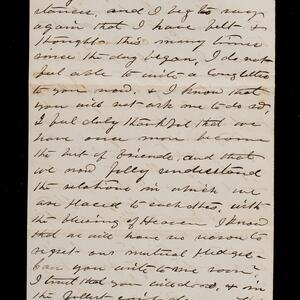 stance, and I beg to say
again that I have felt &
thought this many times
since the day began, I do not
feel able to write a long letter
to you now, & I know that
you will not ask me to do so,
I feel duly thankful that we
have once more become
the best of friends, and that
we now fully understand
the relations in which we
are placed to each other, with
the blessing of Heaven I know
that we will have no reason to
regret our mutual pledges.
Can you write to me soon?
I trust that you will do so, & in
the fullest